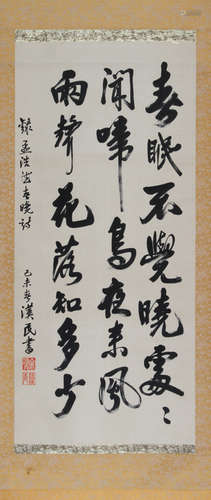 春眠不覺曉處〻
聞啼鳥夜來風
雨聲花落知多少
錄孟浩然春曉詩
己未春漢民書